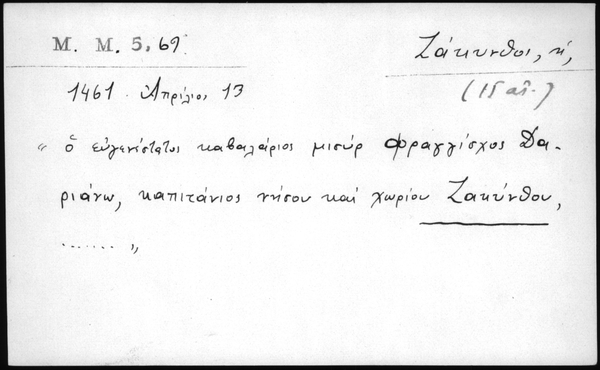 M. M. 5, 69.
Ζάκυνθος, ἡ,
1461 Ἀπρίλιος 13
(15 αἰ.)
“ ὁ εὐγενέστατος καβαλάριος μισὺρ Φραγγίσκος Δα-
ριάνω, καπιτάνιος νήσου καὶ χωρίου Ζακύνθου,
....... „